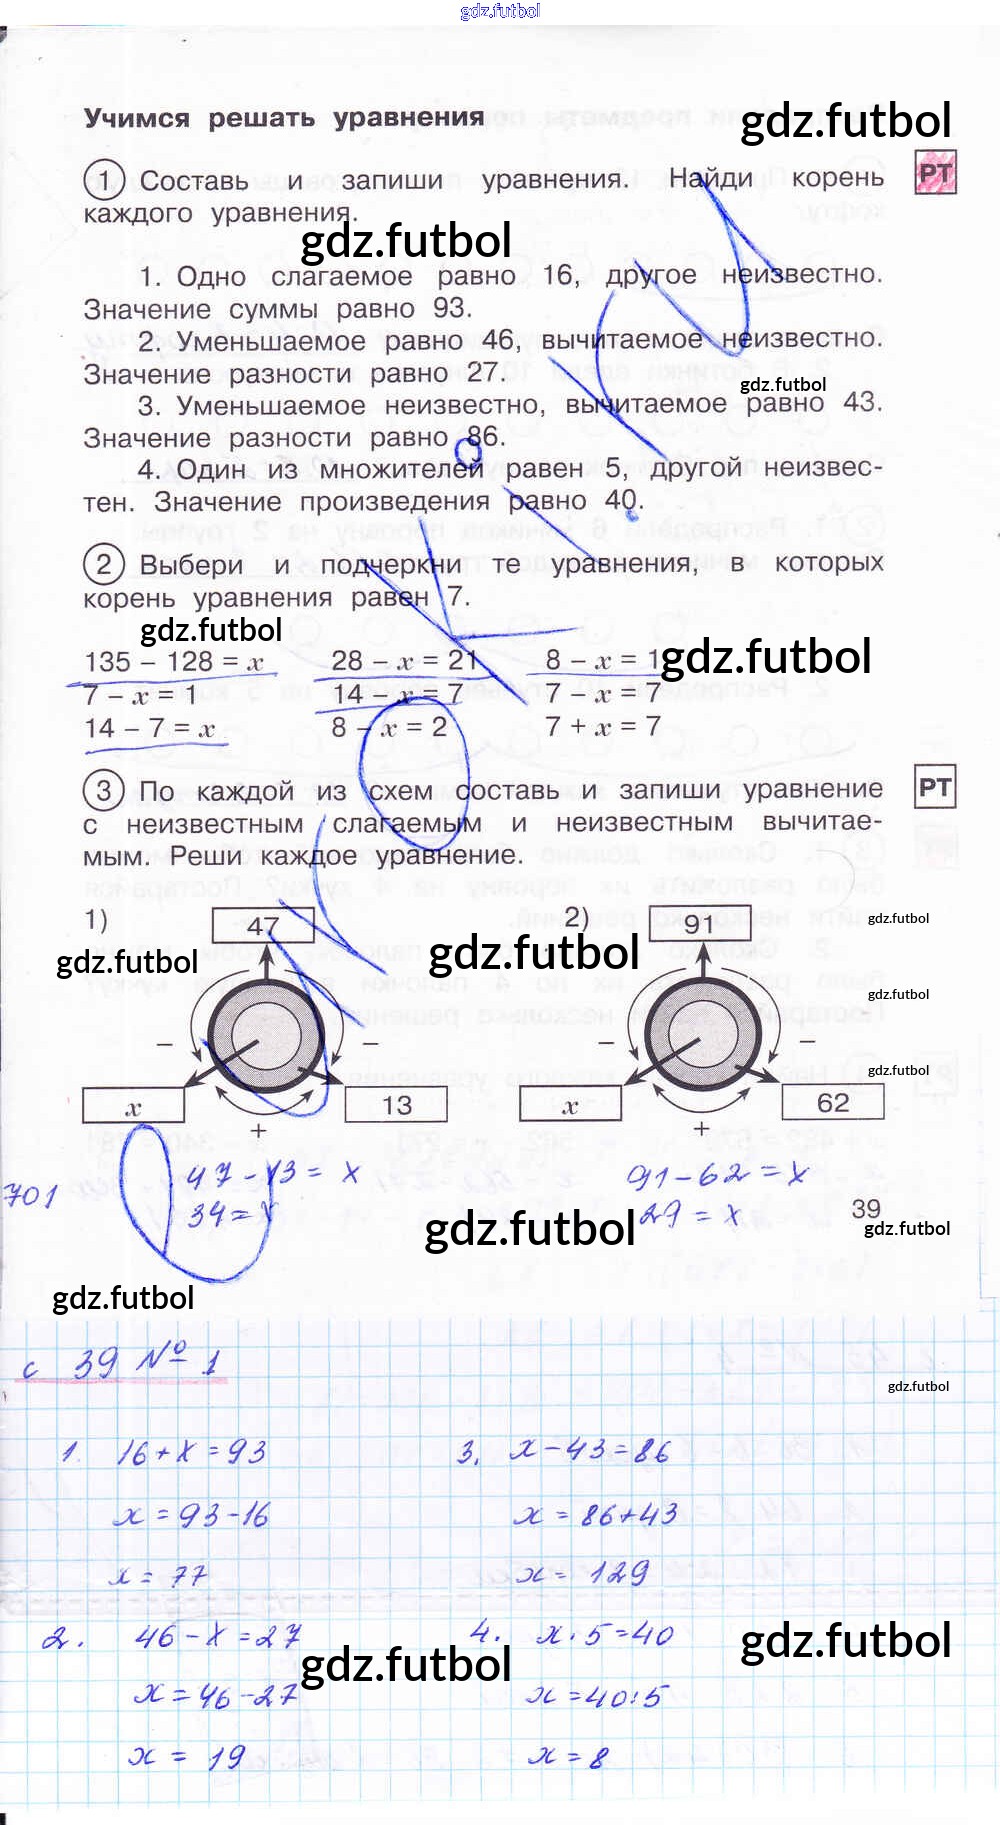 gdz.futbol
Учимся решать уравнения
gdz.futbol
1 Составь и запиши уравнения. Найди корень
РТ
каждого уравнения.
gdz.futbol
1. Одно слагаемое равно 16, другое неизвестно.
Значение суммы равно 93.
2. Уменьшаемое равно 46, вычитаемое неизвестно.
Значение разности равно 27.
gdz.futbol
3. Уменьшаемое неизвестно, вычитаемое равно 43.
Значение разности равно 86.
4. Один из множителей равен 5, другой неизвес-
тен. Значение произведения равно 40.
2 Выбери и подчеркни те уравнения, в которых
корень уравнения равен 7.
gdz.futbol
135 – 128 = x 28 – x = 21 8 – x = 1
gdz.futbol
7 – x = 1 14 – x = 7 7 – x = 7
14 – 7 = x 8 – x = 2 7 + x = 7
3 По каждой из схем составь и запиши уравнение
РТ
с неизвестным слагаемым и неизвестным вычитае-
мым. Реши каждое уравнение.
1) 47 2) 91
gdz.futbol
gdz.futbol
gdz.futbol
gdz.futbol
– – – –
gdz.futbol
x 13 x 62
+ +
47 – 13 = x 91 – 62 = x
701
34 = x 29 = x
39
gdz.futbol
gdz.futbol
gdz.futbol
с 39 № 1
gdz.futbol
1. 16 + x = 93 3. x – 43 = 86
x = 93 – 16 x = 86 + 43
x = 77 x = 129
2. 46 – x = 27 4. x · 5 = 40
gdz.futbol
gdz.futbol
x = 46 – 27 x = 40 : 5
x = 19 x = 8